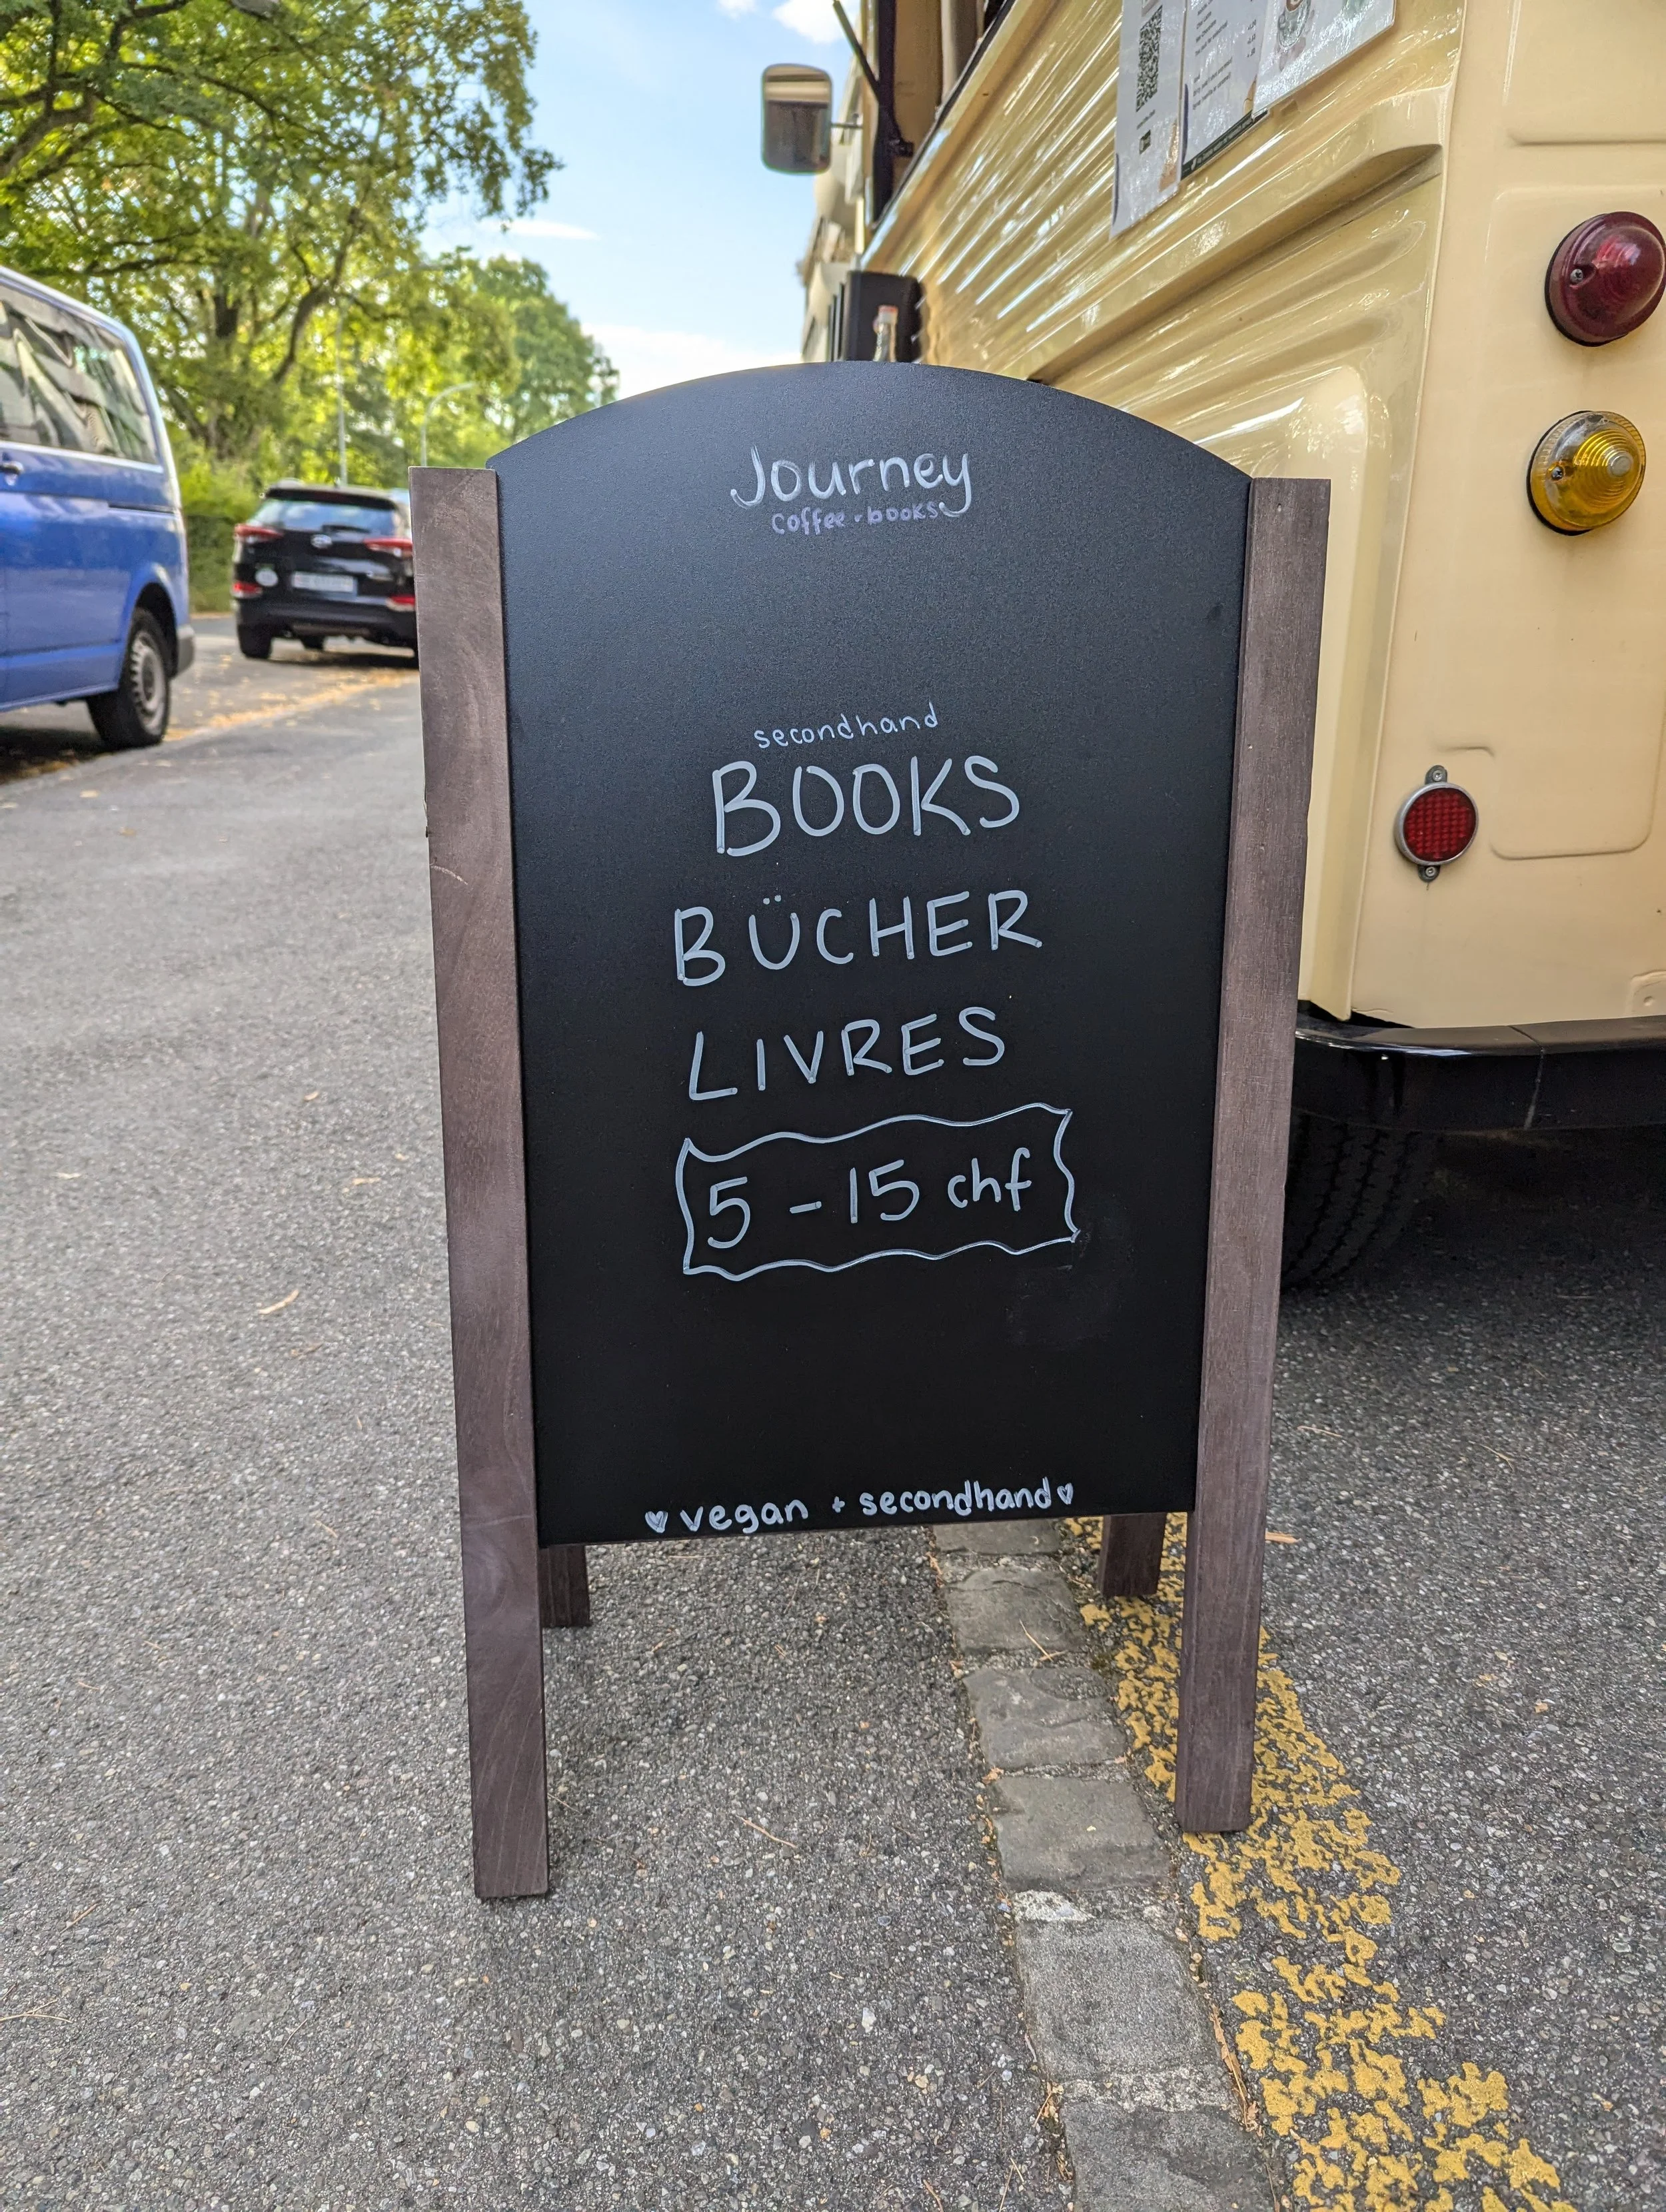 Journey
coffee · books
secondhand
BOOKS
BÜCHER
LIVRES
5 - 15 chf
♥ vegan + secondhand ♥